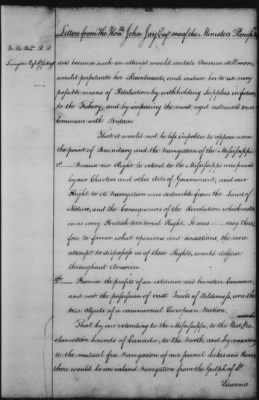 Letters from the Honble John Jay Esqr one of the Ministers Plenipo
To the Honble R. R.
Livingston Esqr
and because such an attempt would irritate America still more,
would perpetuate her Resentments, and induce her to use every
possible means of Retaliation by withholding Supplies in future
to the Fishery, and by imposing the most rigid restraints on a
Commerce with Britain
That it would not be less impolitic to oppose us on
the point of Boundary and the Navigation of the Mississippi
1st Because our Right to extend to the Mississippi was proved
by our Charters and other Acts of Government, and our
Right to its Navigation was deducible from the Laws of
Nature, and the Consequences of the Revolution which vested
in us every British territorial Right. It was easy there-
fore to foresee what opinions and sensations, the mere
attempt to dispossess us of these Rights, would diffuse
throughout America
2d Because the profit of an extensive and lucrative Commerce,
and not the possession of vast Tracts of Wilderness, were the
true objects of a commercial European Nation.
That by our extending to the Mississippi, to the West, to the Pro-
clamation bounds of Canada, to the North, and by consenting
to the mutual free Navigation of our several Lakes and Rivers,
there would be an inland Navigation from the Gulph of St
Lawrence